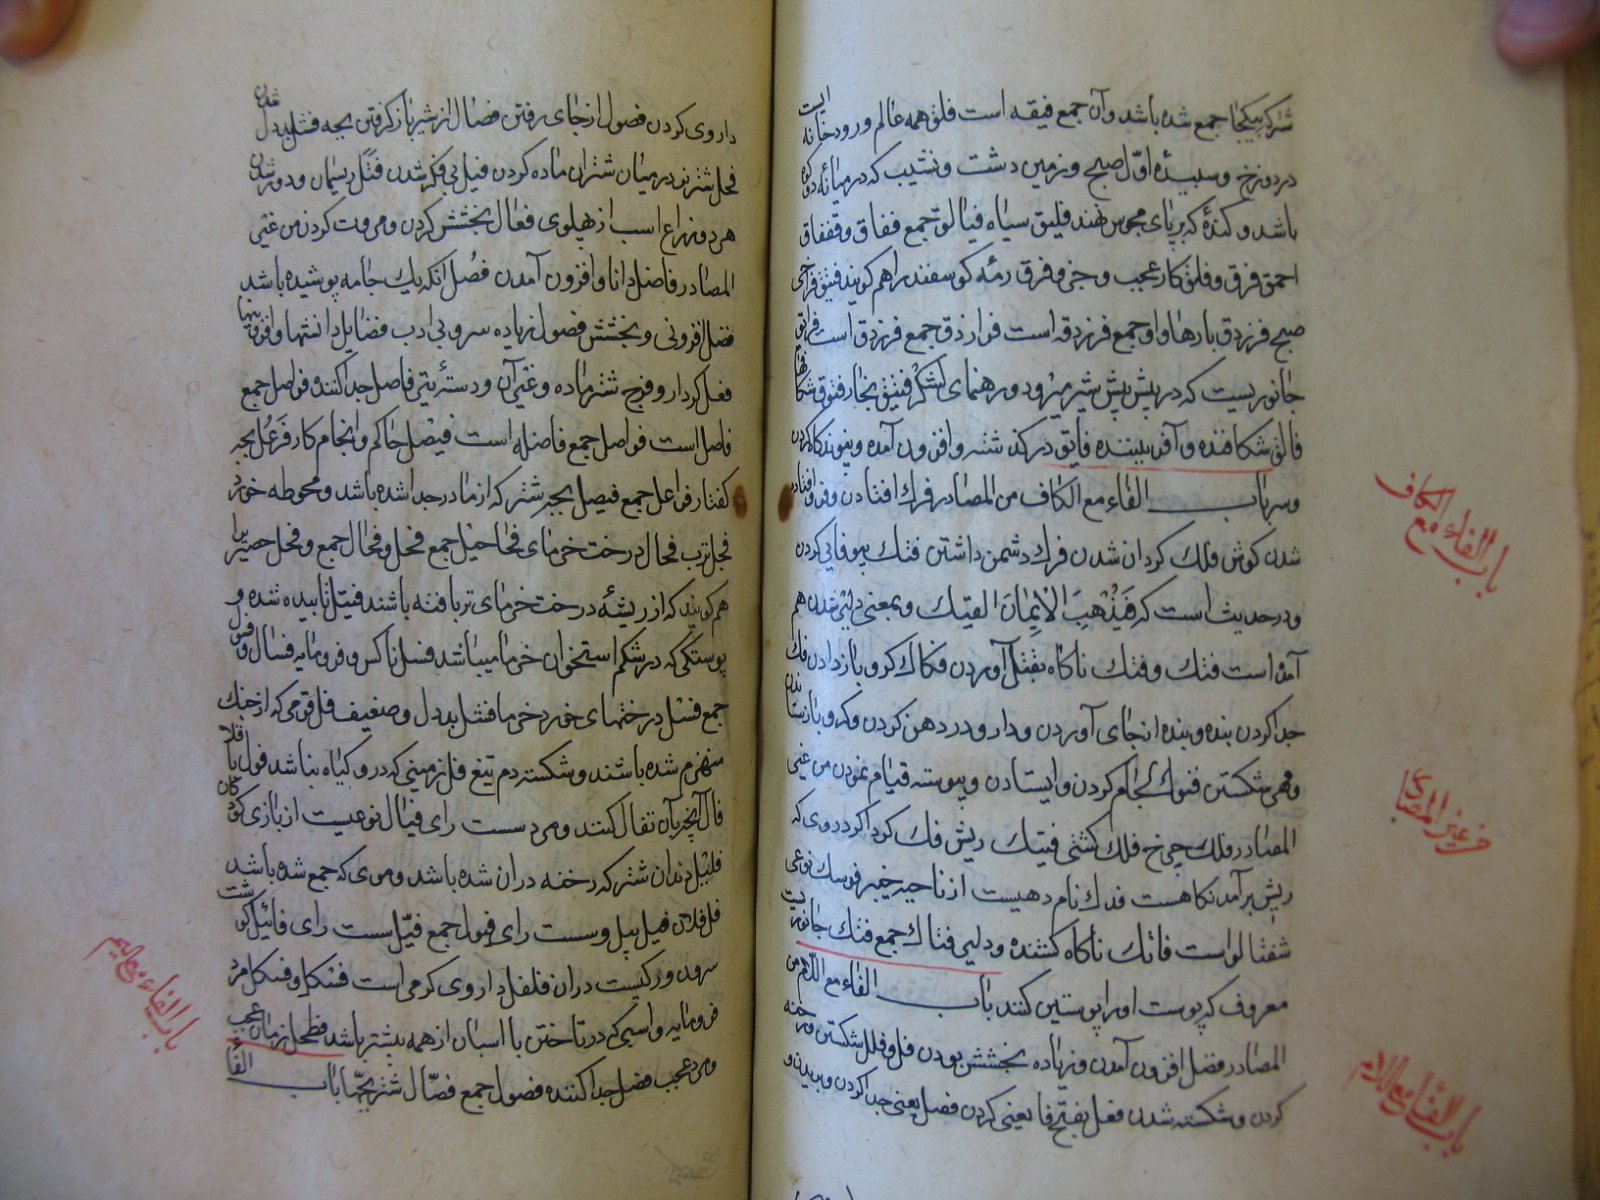 شتر که بیکجا جمع شده باشد وآن جمع فیقه است فلق همه عالم ورودخانه ایست
در دوزخ وسپیده اوّل صبح وزمین دشت ونشیب که در میانهٔ دو کوه
باشد وکندهٔ که بر پای مجوس نهند فلیق سیاه فیالق جمع فقاق وفقفاق
احمق فرق وفلق کار عجب وجز وفرق رمهٔ کوسفند را هم کویند فتق فراخی
صبح فرزدق بارهاواو جمع فرزدقه است فوارزدق جمع فرزدق است فرانق
جانوریست که در پیش پیش شیر میرود ورهنمای لشکر فیتق نجار فتوق شکافها
فالق شکافنده وآفریننده فایق درکذشته وافزون آمده ونیفق
وسر باب الفاء مع الکاف من المصادر فرک افتادن
شدن کوش فلک کردان شدن فرک دشمن داشتن فتک بیوفایی کردن
ودر حدیث است که قَیَّدَ الاِیمَانُ الفتک وبمعنی دلیر شدن هم
آمده است فتک وفتک ناکاه بقتل آوردن فکاک کرو باز دادن فک
جدا کردن بنده وبنده از جای آوردن ودارو در دهن کردن وکرو باز ستادن
ومهر شکستن فنوک لجام کردن وایستادن وپیوسته قیام نمودن من غیر
المصادر فلک چرخ فلک کشتی فتیک ریش فک کرداکرد روی که
ریش برآمدنکاهست فدک نام دهیست از ناحیه خیبر فرسک نوعی
شفتالو است فاتک ناکاه کشنده ودلیر فتاک جمع فنک جانوریست
معروف که پوست او را پوستین کنند باب الفاء مع اللام من
المصادر فضل افزون آمدن وزیاده بخشش بودن فل وفلل شکستن ورخنه
کردن وشکسته شدن فعل بفتح فا یعنی کردن فصل یعنی جدا کردن وبریدن و
باب الفاء مع الکاف
من غیر المصادر
باب الفاء مع اللام
داروی کردن فصول از جای رفتن فصال از شیر باز کرفتن بچه فشل بددل شدن
فحل شتر نر در میان شتران ماده کردن فیل بی فکر شدن فَتَل ریسمان ودور شدن
هر دو ذراع اسب از پهلوی فعال بخشش کردن ومروت کردن من غیر
المصادر فاضل دانا وافزون آمدن فضل آنکه یک جامه پوشیده باشد
فضل افزونی وبخشش فضول زیاده سر وبی ادب فضایل دانشها وافزونیها
فعل کردار وفرج شتر ماده وغیر آن ودستهٔ تیر فاصل جدا کننده فواصل جمع
فاصل است فواصل جمع فاصله است فیصل حاکم وانجام کار فَرعُل بچه
کفتار فراعل جمع فصیل بچهٔ شتر که از مادر جدا شده باشد ومحوطه خورد
فجل ترب فحال درخت خرمای فحاحیل جمع فحل وفحال جمع وفحل حصیر را
هم کویند که از ریشهٔ درخت خرمای تر بافته باشند فتیل تابیده شده و
پوستکی که در شکم استخوان خرما میباشد فسل ناکس وفرومایه فسال وفسول
جمع فسل درختهای خورد خرما فشل بددل وضعیف فل قومی که از جنک
منهزم شده باشند وشکسته دم تیغ فل زمینی که درو کیاه نباشد فول باقلا
فال آنچه بآن تفال کنند ومرد سست رای فیال نوعیست از بازی کودکان
فلیل دندان شتر که رخنه در آن شده باشد وموی که جمع شده باشد
فلفلان فیل پیل وسست رای فیول جمع فیّل سست رای فائل کوشت
سرون ورکیست در آن فلفل داروی کرمی است فسکل وفسکل مرد
فرومایه واسبی که در تاختن با اسبان از همه پستر باشد فطحل زمان عجب
ومرد عجب فصل جدا کننده فصول جمع فصّال شتر بچها باب الفاء
باب الفاء مع المیم